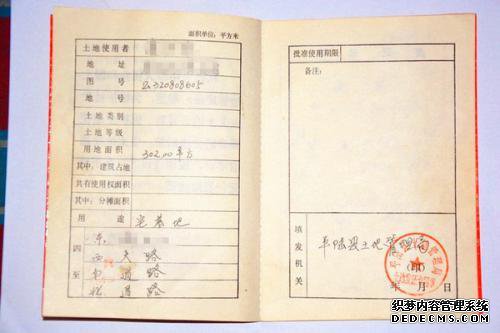 面积单位：平方米
土地使用者
地 址
图 号 G320808605
地 号
土地类别
土地等级
用地面积 302.00平方
其中：建筑占地
共有使用权面积
其中：分摊面积
用 途 宅基地
四至 东
西 大路
南 道路
北 道路
批准使用期限
备注：
填发机关 平陆县土地管理局
（印）
年 月 日
织梦内容管理系统
DEDECMS.COM